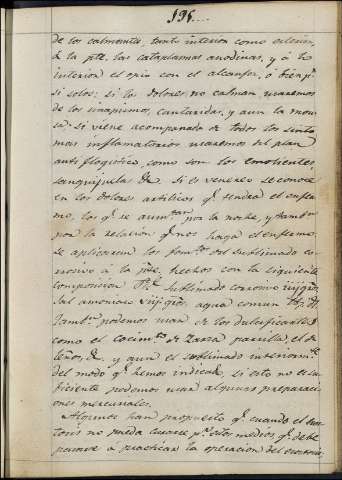 195...
de los calmantes, tanto interior como exterior,
à la pte. las cataplasmas anodinas, y à lo
interior el opio con el alcanfor, ó bien pr.
si solos; si los dolores no calman usaremos
de los sinapismos, cantaridas, y aun la mo
sa: si viene acompañado de todos los sinto
mas inflamatorios usaremos del plan
antiflogistico, como son los emolientes,
sanguijuelas &. Si es venereo se conoce
en los dolores q. tendra el enfer
mo, los q. se aumtan. por la noche, y tambn.
por la relacion q. nos haga el enfermo:
se aplicaran los fomtos. del sublimado co
rrosivo à la pte. hechos con la siguiente
composicion sublimado corrosivo
Sal amoniaco agua comun
Tambn. podemos usar de los dulcificantes
como el cocimto. de Zarza parrilla, el de
leños, &. y aun el sublimado interiormte.
del modo q. hemos indicado, si esto no es su
ficiente podemos usar algunas preparacio
nes mercuriales.
Algunos han propuesto q. cuando el
no pueda curarse pr. estos medios, q. debe
pasarse à practicar la operacion